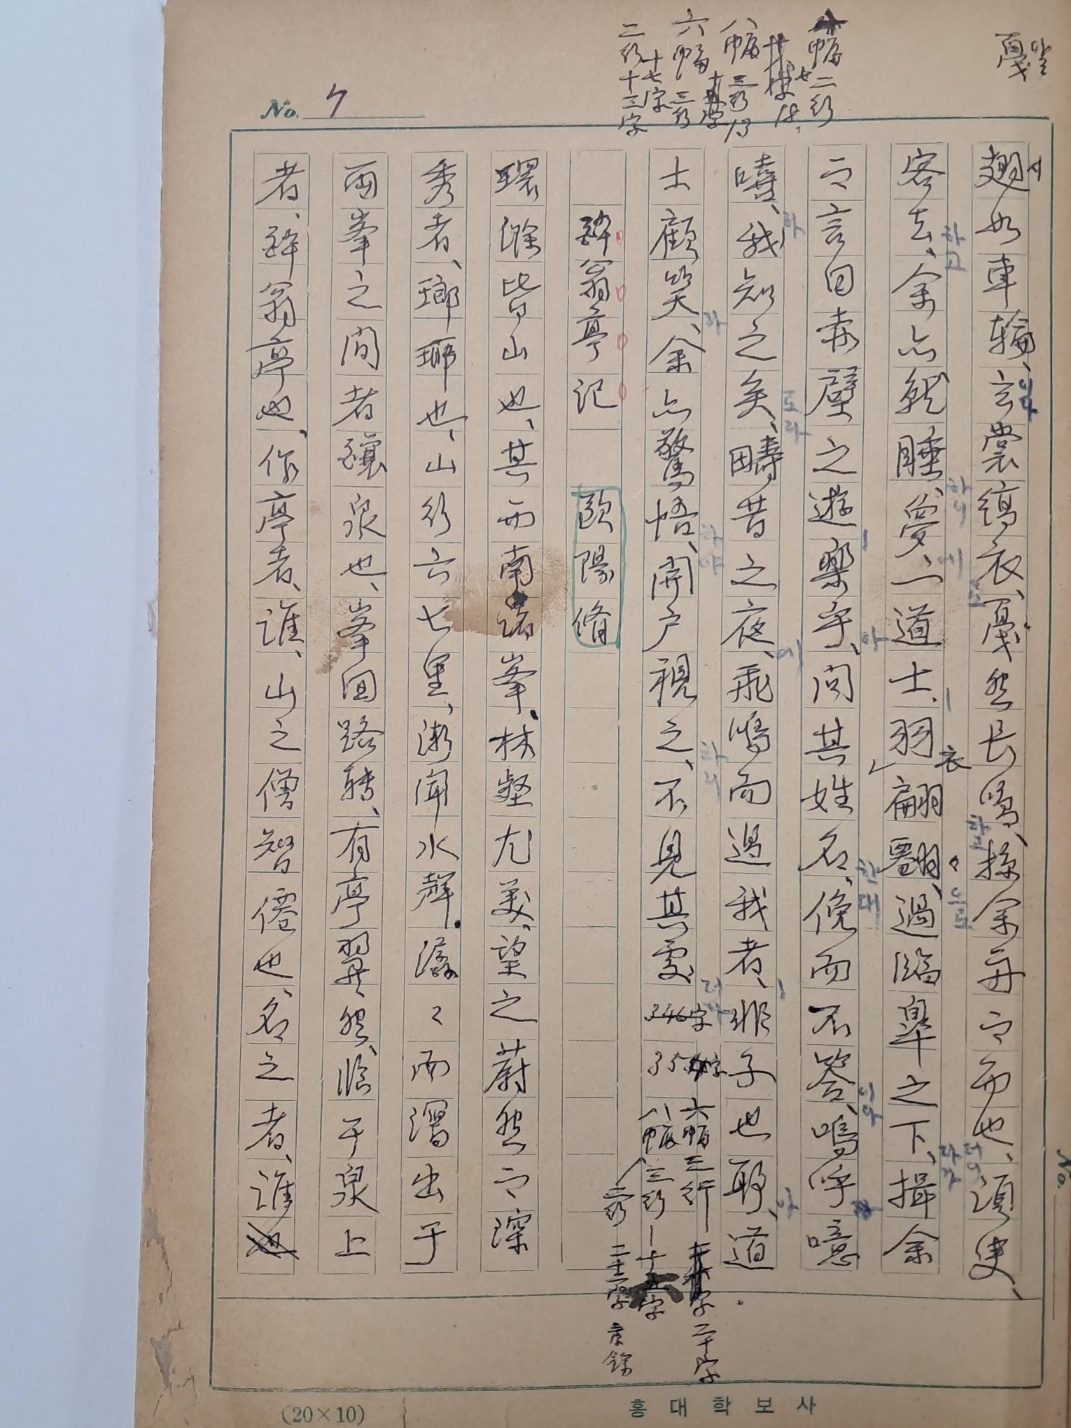 No. 7
戛 알
二行十三字
六幅 三行 十七字
八幅 三行 13
幅 二行
翅如車輪、玄裳縞衣、戛然長鳴、掠余舟而西也、須臾、
客去、余亦就睡、夢、一道士、羽衣翩翩、過臨皐之下、揖余
而言曰赤壁之遊樂乎、問其姓名、俛而不答、嗚呼噫
嘻、我知之矣、疇昔之夜、飛鳴而過我者、非子也耶、道
士顧笑、余亦驚悟、開戶視之、不見其處
346字
355字
六幅三行 二十字
八幅三行
二行
醉翁亭記 歐陽脩
環滁皆山也、其西南諸峯、林壑尤美、望之蔚然而深
秀者、瑯琊也、山行六七里、漸聞水聲、潺々而瀉出于
兩峯之間者釀泉也、峯回路轉、有亭翼然、臨于泉上
者、醉翁亭也、作亭者、誰、山之僧智僊也、名之者、誰
(20×10)
홍대학보사